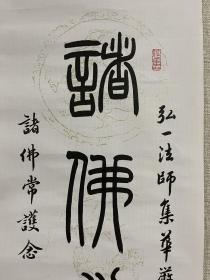 弘一法師集華嚴
諸佛
諸佛常護念